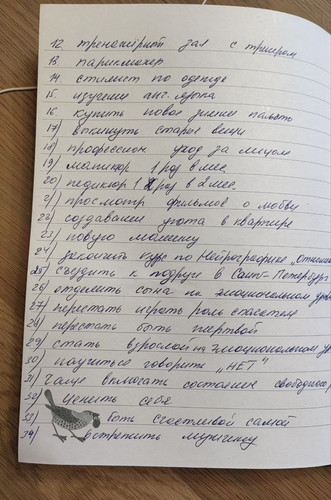 12. тренажёрный зал с тренером
13. парикмахер
14. стилист по одежде
15. изучение анг. языка
16. купить новое зимнее пальто
17) выкинуть старые вещи
18) профессион уход за лицом
19) маникюр 1 раз в мес.
20) педикюр 1 раз в 2 мес.
21) просмотр фильмов о любви
22) создавание уюта в квартире
23) новую машину
24) закончить курс по Нейрографике
25) съездить к подруге в Санкт-Петербург
26) отделить сына на эмоциональном
27) перестать играть роль спасателя
28) перестать быть жертвой
29) стать взрослой на эмоциональном
30) научиться говорить "НЕТ"
31) Чаще включать состояние
32) ценить себя
33) быть счастливой самой
34) встретить мужчину